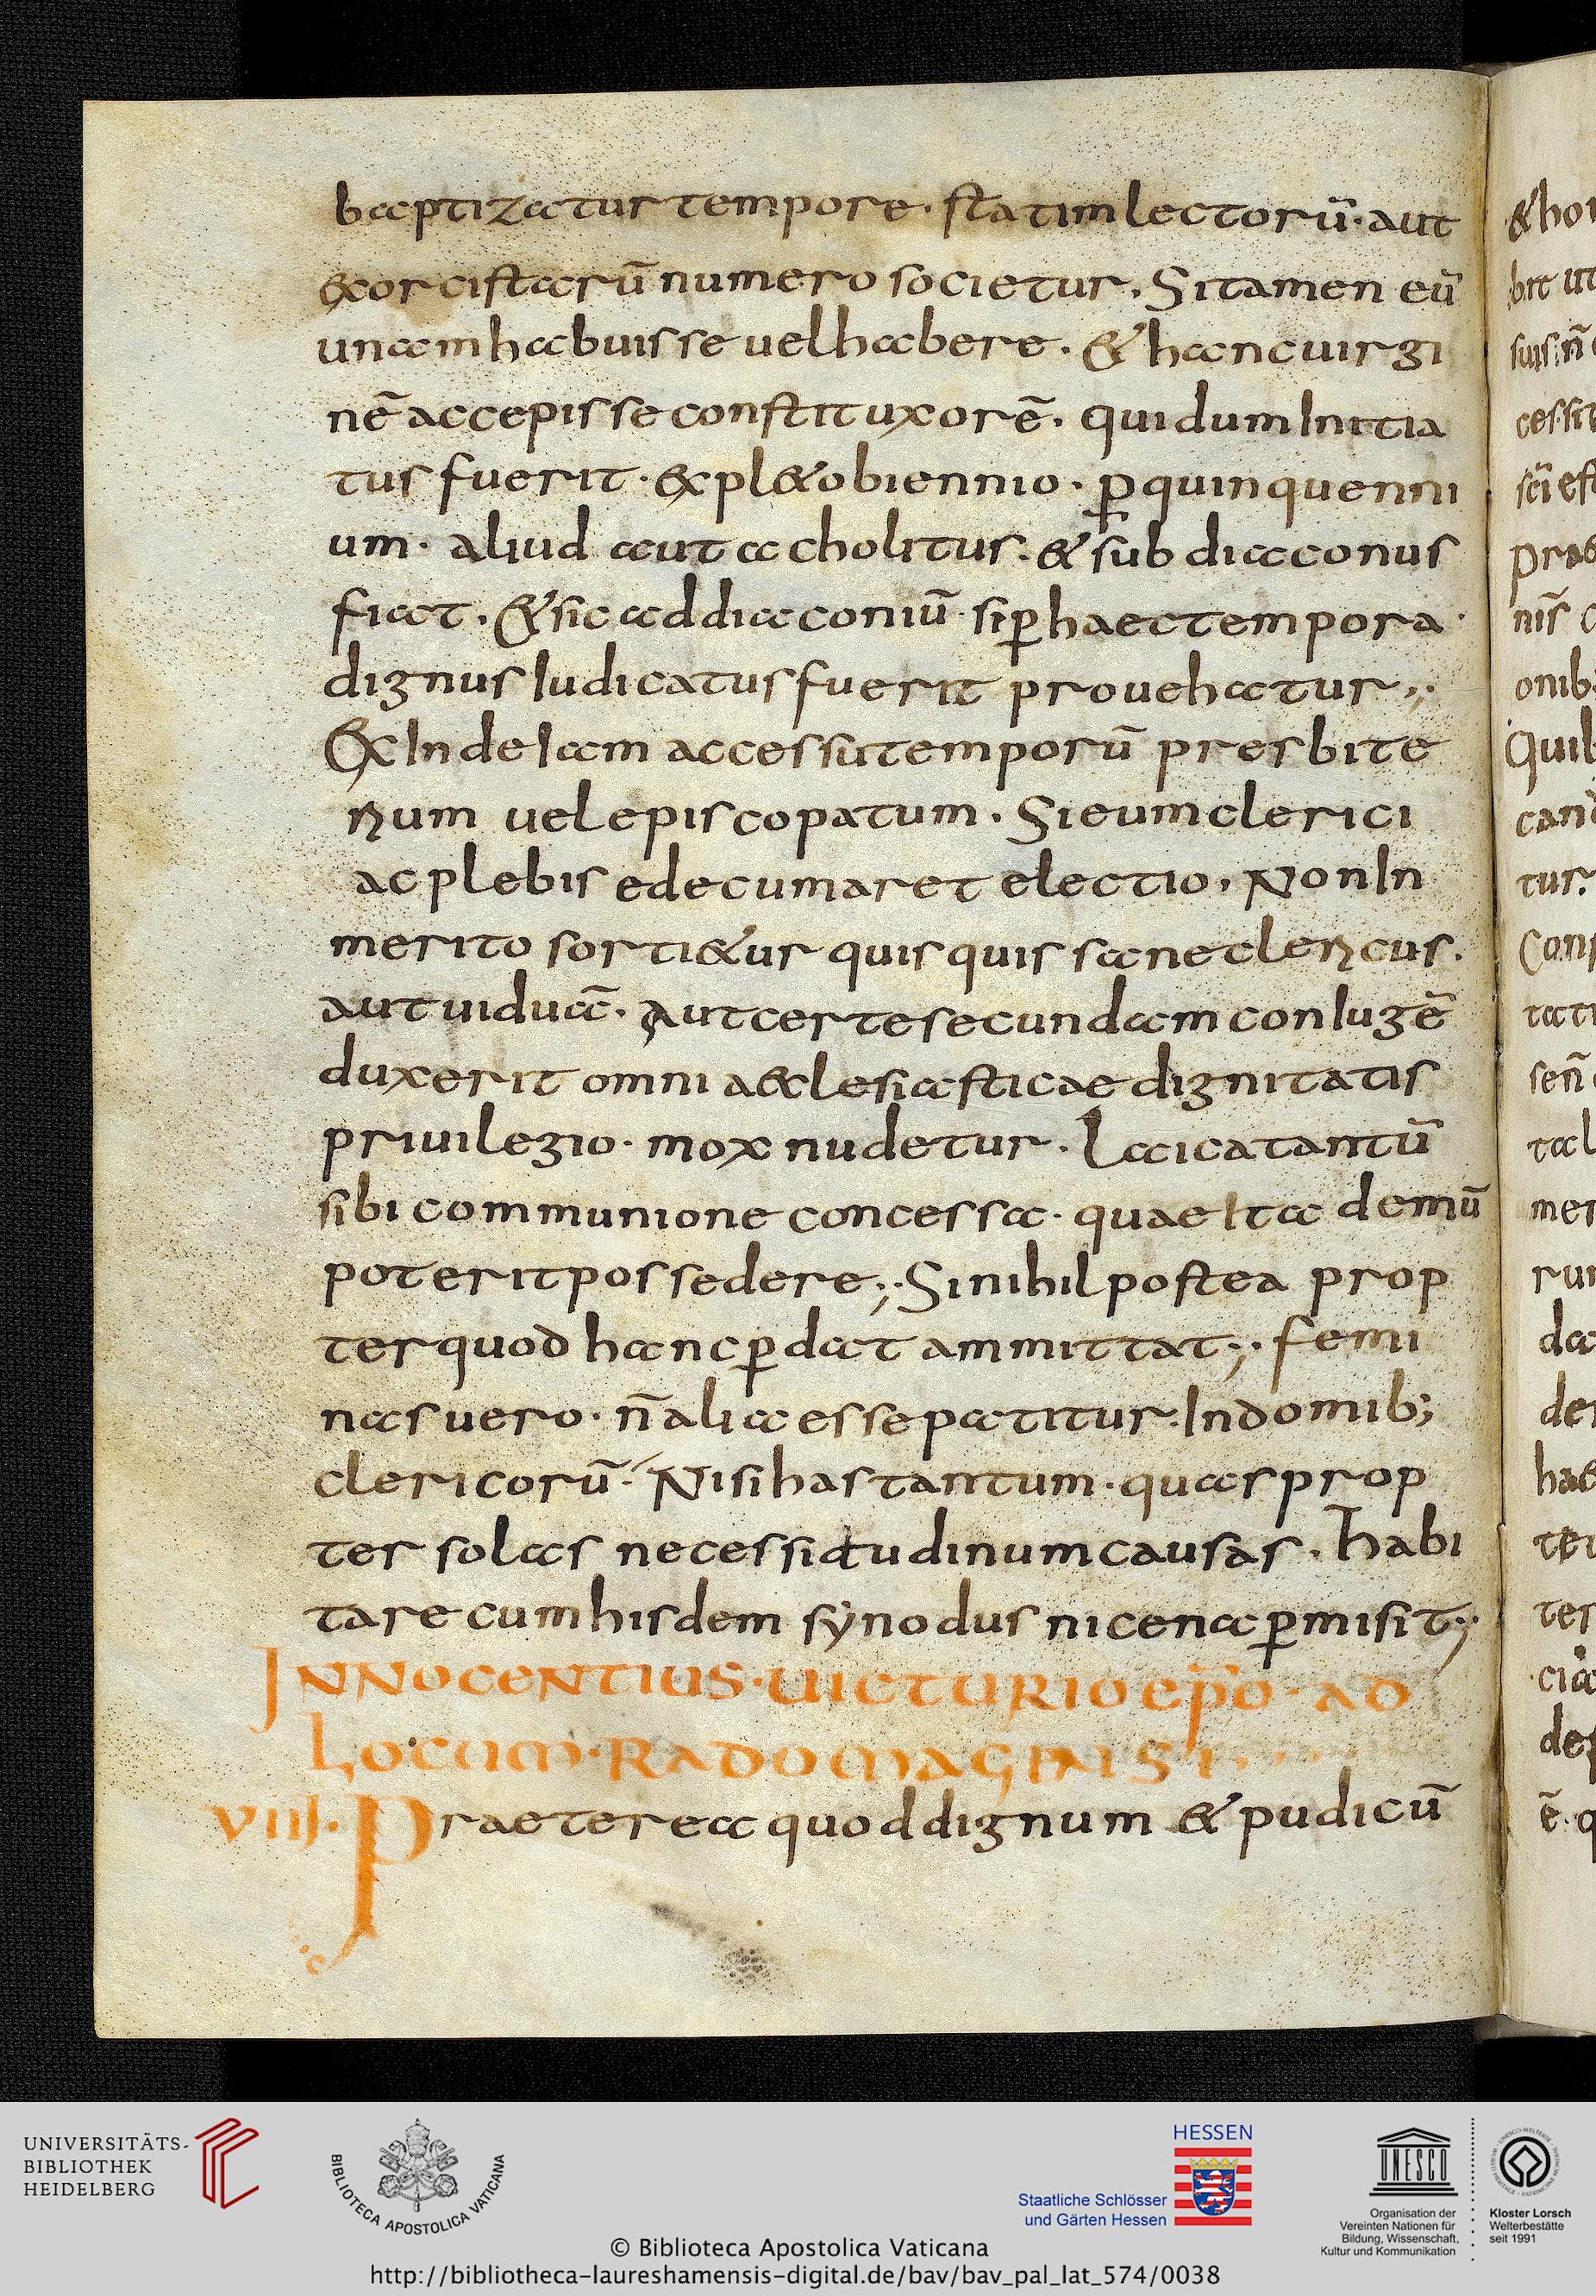 baptizatur tempore· statim lectorū· aut
exorcistarū numero societur. Si tamen eū
unam habuisse uel habere. & hanc uirgi
nē accepisse constit uxorē. qui dum Initia
tus fuerit· expl&o biennio· ꝑ quinquenni
um· aliud aut acholitus. & subdiaconus
fiat. & sic ad diaconiū· si ꝑ haec tempora·
dignus Iudicatus fuerit prouehatur;·
Ex Inde Iam accessu temporū presbite
rium uel episcopatum. Si eum clerici
ac plebis edecumaret electio. Non In
merito sorti&ur quisquis sane clericus.
aut uiduā. Aut certe secundam coniugē
duxerit omni aecclesiasticae dignitatis
priuilegio· mox nudetur. Laica tantū
sibi communione concessa· quae Ita demū
poterit possedere;· Si nihil postea prop
ter quod hanc ꝑdat ammittat;· femi
nas uero· n̄ alia esse patitur. In domib;
clericorū· Nisi has tantum· quas prop
ter solas necessitudinum causas. habi
tare cum hisdem synodus nicena ꝑmisit;·
INNOCENTIUS· UICTURIO EP̄O· AD
LOCUM· RADOMAGENSI
VIIII. Praeterea quod dignum & pudicū
&hon
bit ut
suis n̄
cessit
sc̄i est
prae
nis̄
onib
Quil
cand
tur.
Cons
tati
sen̄
tal
mer
run
da
der
hae
ter
cia
des
ē· q
UNIVERSITÄTS-
BIBLIOTHEK
HEIDELBERG
BIBLIOTECA APOSTOLICA VATICANA
HESSEN
Staatliche Schlösser
und Gärten Hessen
UNESCO
Organisation der
Vereinten Nationen für
Bildung, Wissenschaft,
Kultur und Kommunikation
Kloster Lorsch
Welterbestätte
seit 1991
© Biblioteca Apostolica Vaticana
http://bibliotheca-laureshamensis-digital.de/bav/bav_pal_lat_574/0038